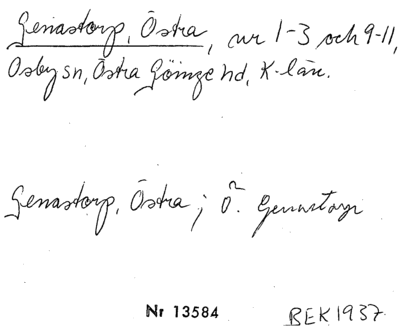 Genastorp, Östra, nr 1-3 och 9-11,
Osby sn, Östra Göinge hd, K-län.
Genastorp, Östra; Ö. Genastorp
Nr 13584 BEK 1937